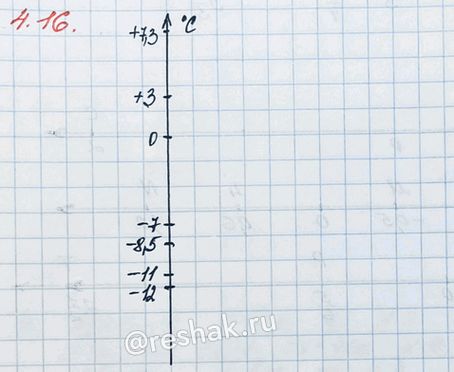 4.16.
°C
+7,3
+3
0
-7
-8,5
-11
-12
@reshak.ru